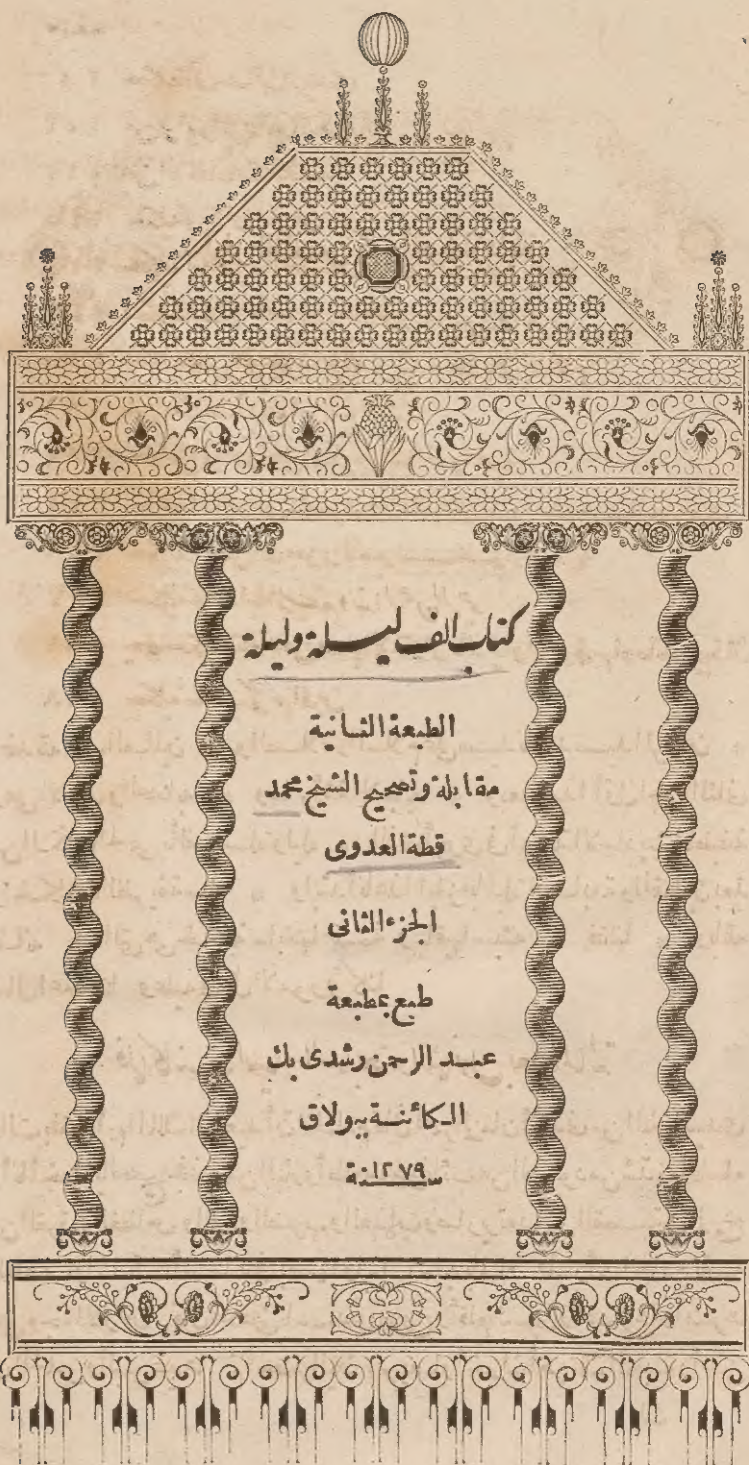 كتاب الف ليلة وليلة
الطبعة الثانية
مقابلة وتصحيح الشيخ محمد
قطة العدوى
الجزء الثانى
طبع بمطبعة
عبد الرحمن رشدى بك
الكائنة ببولاق
سنة ١٢٧٩